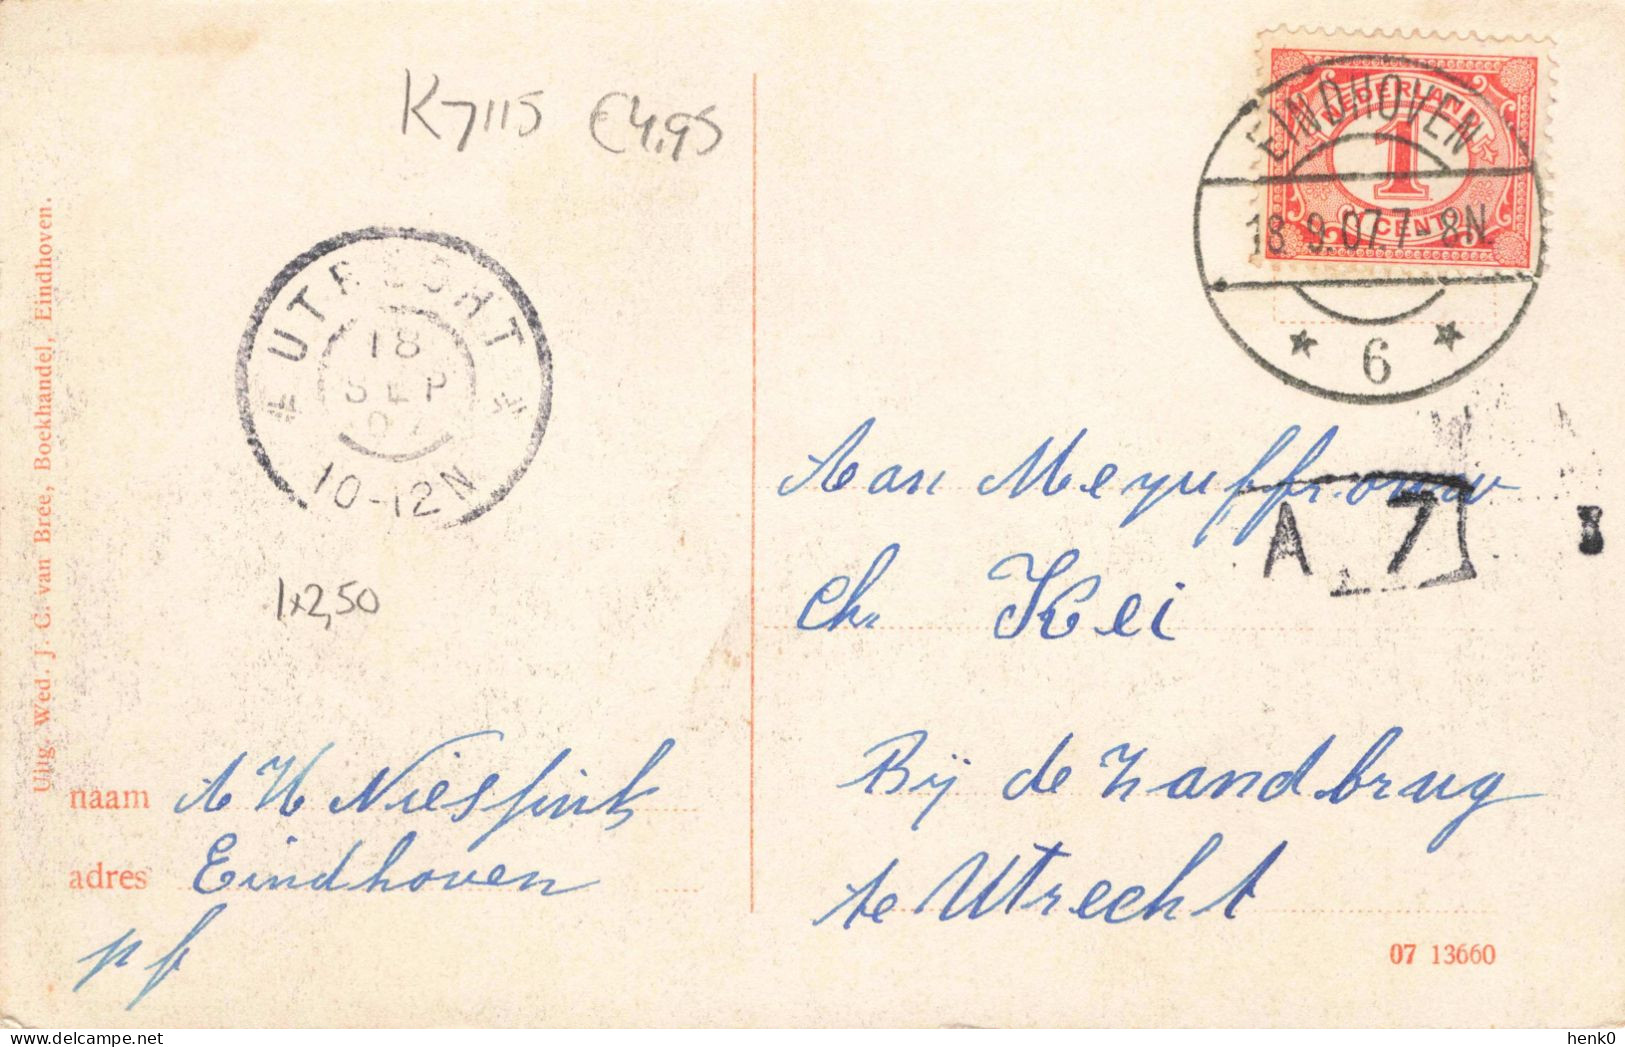 K7115 €4,95
NEDERLAND
1
CENT
EINDHOVEN
18 9.07.7-8N.
6
UTRECHT
18
SEP
07
10-12N
1x2,50
A 7
Aan Mejuffrouw
Ch. Kei
Bij de Zandbrug
te Utrecht
Uitg. Wed. J. C. van Bree, Boekhandel, Eindhoven.
naam A H Niesfink
adres Eindhoven
pf
07 13660
henk0